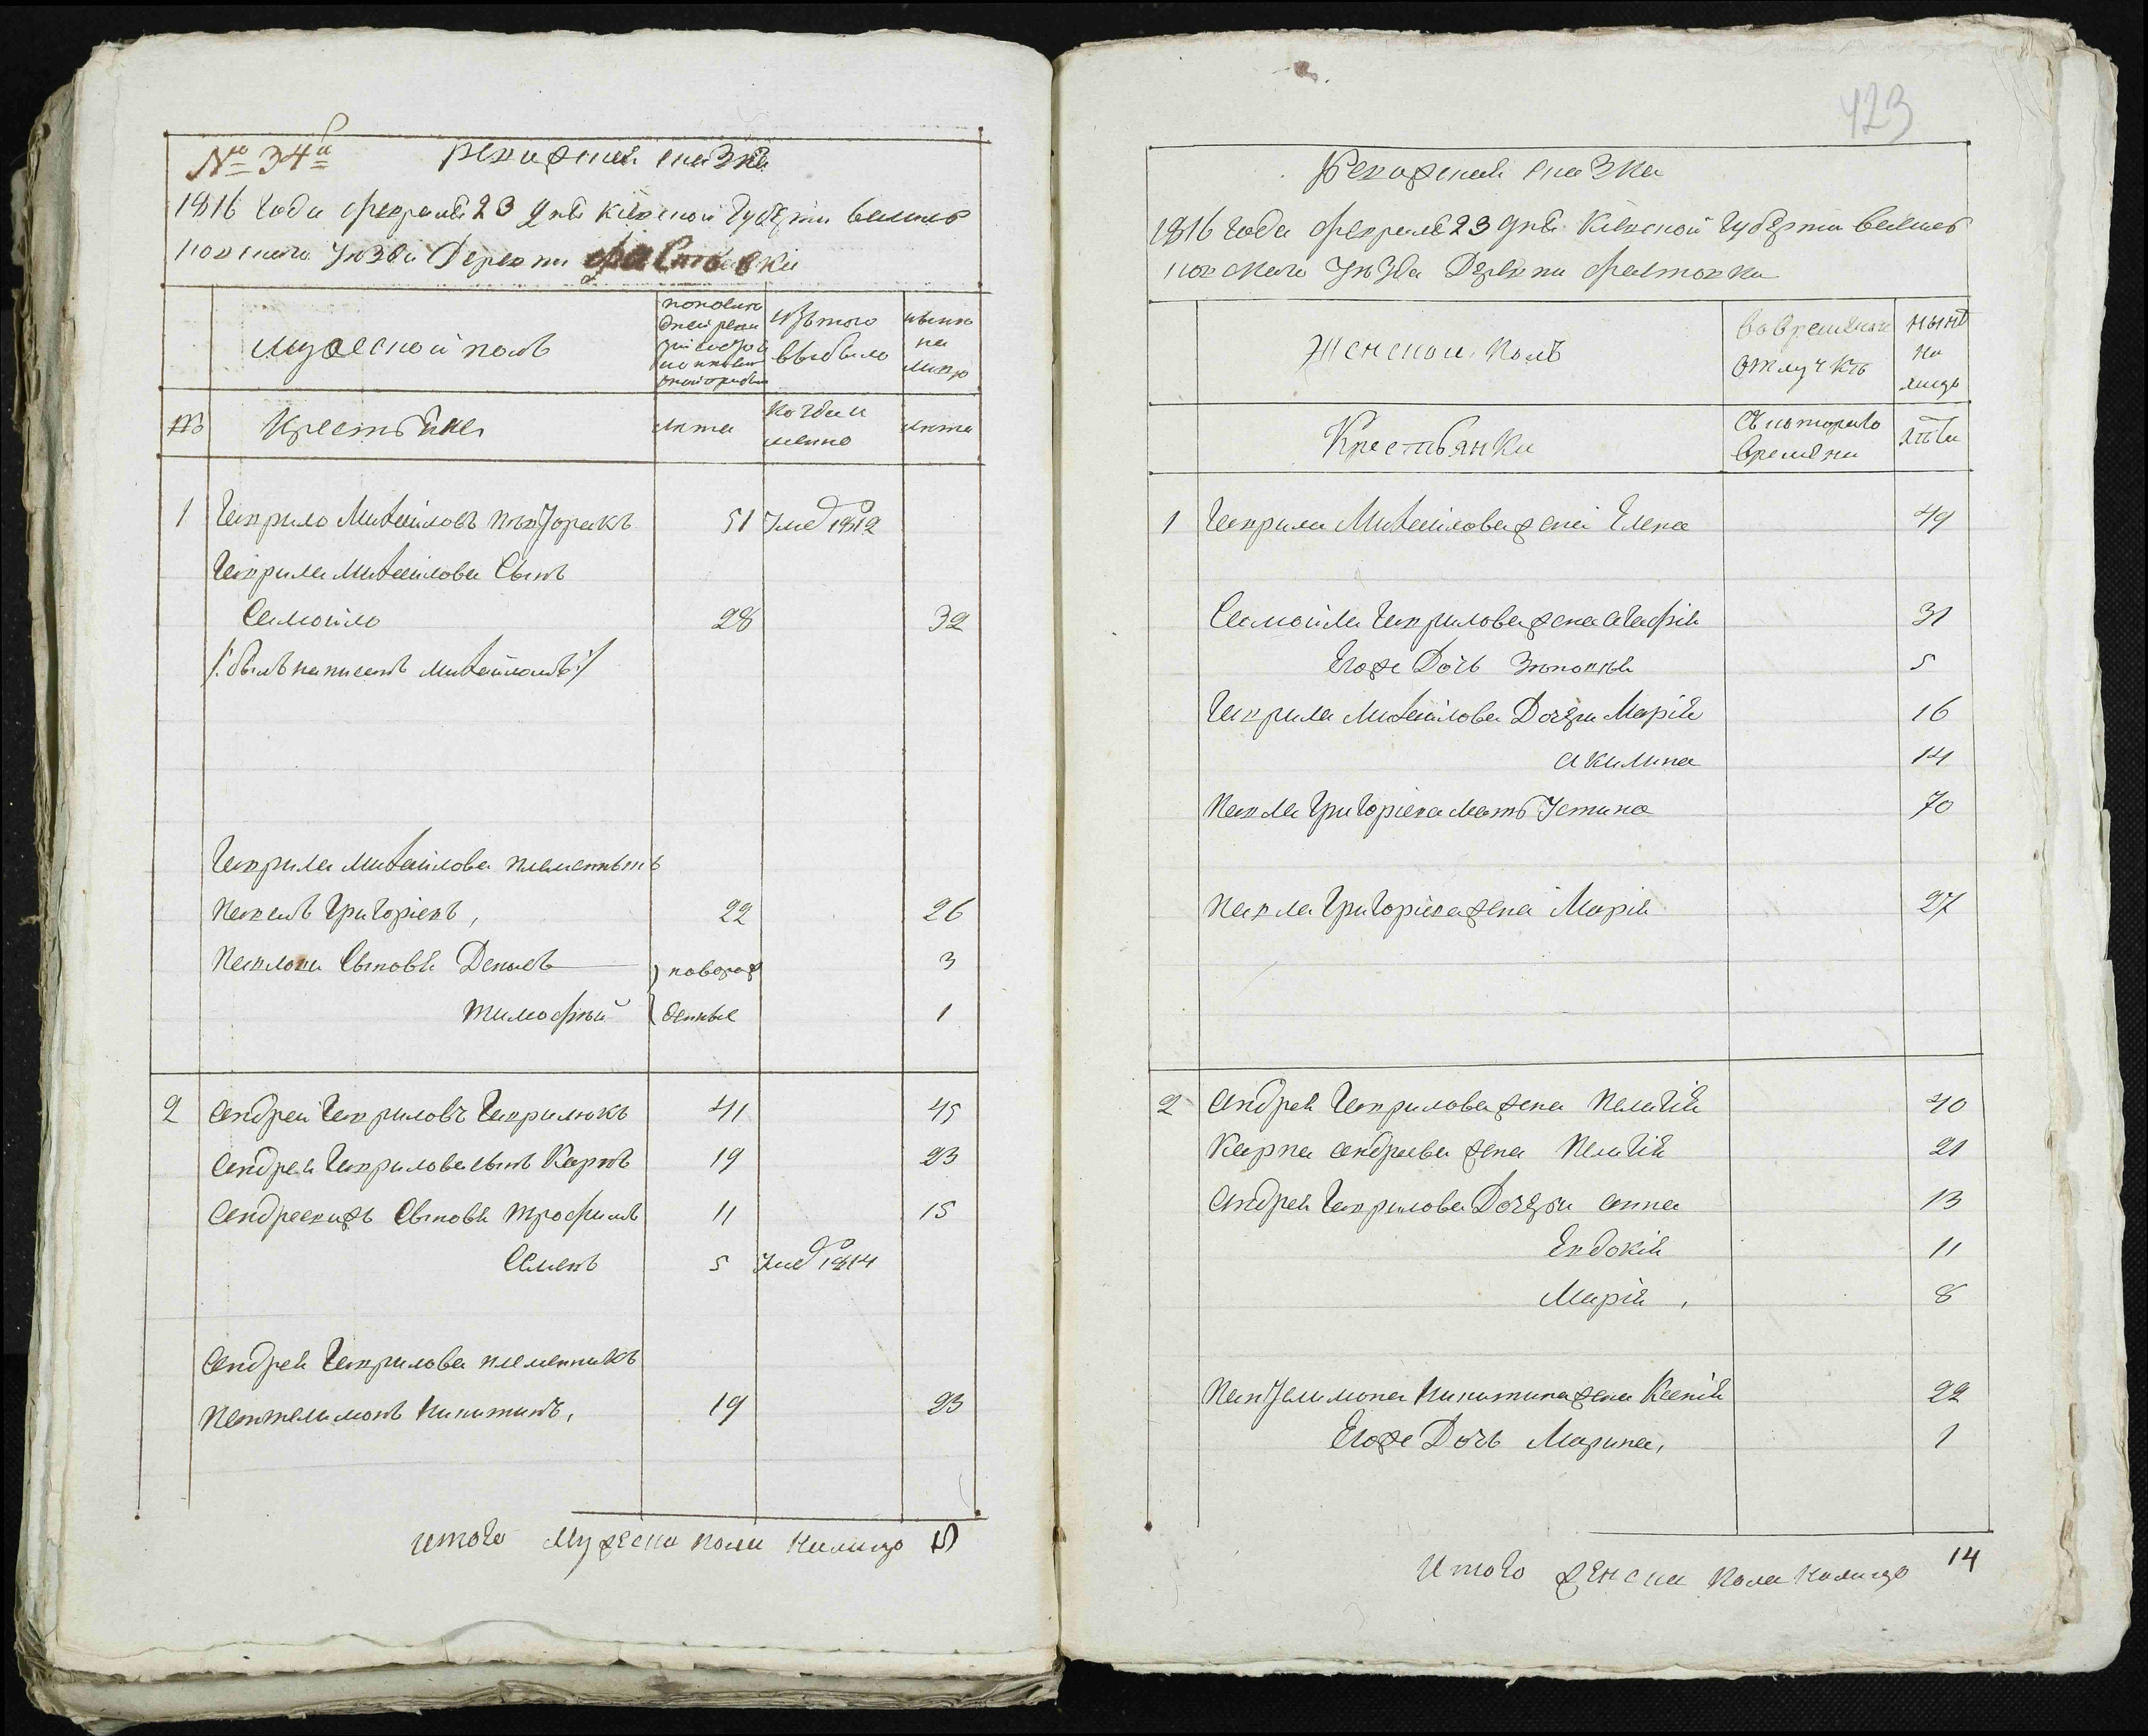 № 34й Ревизская сказка
1816 года февраля 23 дня Киевской Губерти василь
ковского Уезда Деревни Фастовки
Мужеской полъ
Изъ того
выбыло
ныне
на
лицо
№ Крестьяне лета
когда и
менно
лета
1 Гаврило Михайловъ 51 Умер 1812
Гаврила Михайлова Сынъ
Самойло 28 32
/:былъ написанъ Михайломъ:/
Гаврила Михайлова племенникъ
Павелъ Григоріевъ, 22 26
Павловы Сыновя Денисъ новорож 3
Тимофей денные 1
2 Андрей Гавриловъ Гаврилюкъ 41 45
Андрея Гаврилова сынъ Карпъ 19 23
Андреевихъ Сыновя Трофимъ 11 15
Семенъ 5 Умер 1814
Андрея Гаврилова племенникъ
Пантелимонъ Никитинъ, 19 23
Итого Мужеска пола налицо
423
Ревизская сказка
1816 года февраля 23 дня Киевской Губерти василь
ковского Уезда Деревни Фастовки
Женской Полъ
во временной
отлучкѣ
нынѣ
на
лицо
Крестьянки
Съ которого
времени
лѣта
1 Гаврила Михайлова жена Елена 49
Самойла Гаврилова жена Агафія 31
Егоже Дочь Зѣновия 5
Гаврила Михайлова Дочери Марія 16
акилина 14
Павла Григоріева мать Устина 70
Павла Григоріева жена Марія 27
2 Андрея Гаврилова жена Пелагія 40
Карпа андреева жена Пелагія 21
Андрея Гаврилова Дочери анна 13
Евдокія 11
Марія, 8
Пантелимона Никитина жена Ксенія 22
Егоже Дочь Марина, 1
Итого женска пола налицо 14